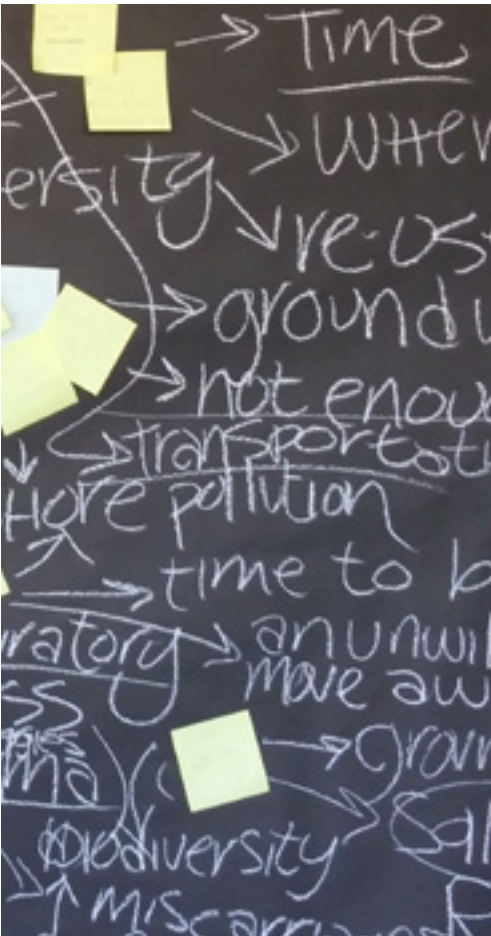 Time
WHEN
ersity
re-us
ground
not enou
transportati
More pollution
time to b
uratory
an unwil
move aw
ss
groun
Sal
biodiversity
miscarriages